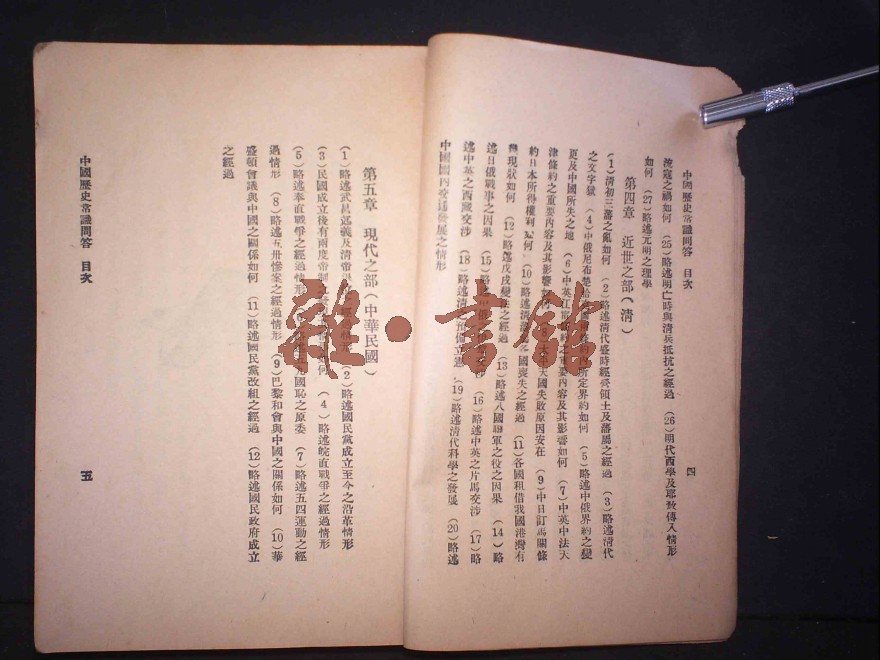 中國歷史常識問答 目次
四
流寇之禍如何 (25)略述明亡時與清兵抵抗之經過 (26)明代西學及耶教傳入情形
如何 (27)略述元明之理學
第四章 近世之部(清)
(1)清初三藩之亂如何 (2)略述清代盛時經營領土及藩屬之經過 (3)略述清代
之文字獄 (4)中俄尼布楚 界約如何 (5)略述中俄界約之變
更及中國所失之地 (6)中英江甯 約之重要內容及其影響如何 (7)中英中法天
津條約之重要內容及其影響如何 天國失敗原因安在 (9)中日訂馬關條
約日本所得權利如何 (10)略述清 各國喪失之經過 (11)各國租借我國港灣有
現狀如何 (12)略述戊戌變法之經過 (13)略述八國聯軍之役之因果 (14)略
述日俄戰事之因果 (15)略 交涉 (16)略述中英之片馬交涉 (17)略
述中英之西藏交涉 (18)略述清 預備立憲 (19)略述清代科學之發展 (20)略述
中國國內交通發展之情形
第五章 現代之部(中華民國)
(1)略述武昌起義及清帝 (2)略述國民黨成立至今之沿革情形
(3)民國成立後有兩度帝制 (4)略述皖直戰爭之經過情形
(5)略述奉直戰爭之經過情形 國恥之原委 (7)略述五四運動之經
過情形 (8)略述五卅慘案之經過情形 (9)巴黎和會與中國之關係如何 (10)華
盛頓會議與中國之關係如何 (11)略述國民黨改組之經過 (12)略述國民政府成立
之經過
中國歷史常識問答 目次
五
雜·書館